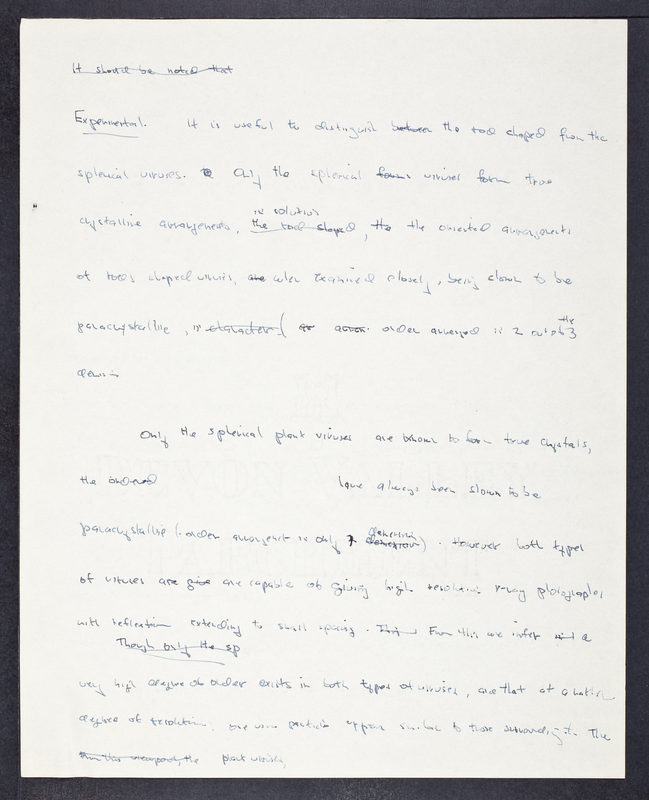 It should be noted that
Experimental. It is useful to distinguish between the rod shaped from the
spherical viruses. Only the spherical forms viruses form true
in solution
crystalline arrangements, the rod shaped, the the oriented arrangements
of rods shaped viruses, are when examined closely, being shown to be
the
paracrystalline, in character ( order arranged in 2 out of 3
Only the spherical plant viruses are known to form true crystals,
the ordered have always been shown to be
dimension
paracrystalline (order arrangement in only dimension). However both types
of viruses are give are capable of giving high resolution x-ray photographs,
with reflection extending to small spacing. This From this we infer a
Though only the sp
very high degree of order exists in both types of viruses, and that at a
degree of resolution, one virus particle appears similar to those surrounding it. The
the plant viruses,